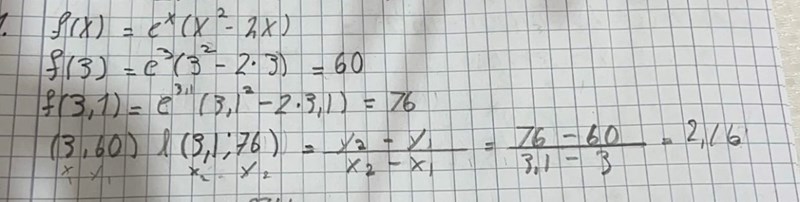 1. f(x) = e^x (x² - 2x)
f(3) = e³(3² - 2·3) = 60
f(3,1) = e^3,1 (3,1² - 2·3,1) = 76
(3,60) l (3,1;76) = y₂ - y₁ / x₂ - x₁ = 76 - 60 / 3,1 - 3 = 2,16
x₁ y₁ x₂ y₂